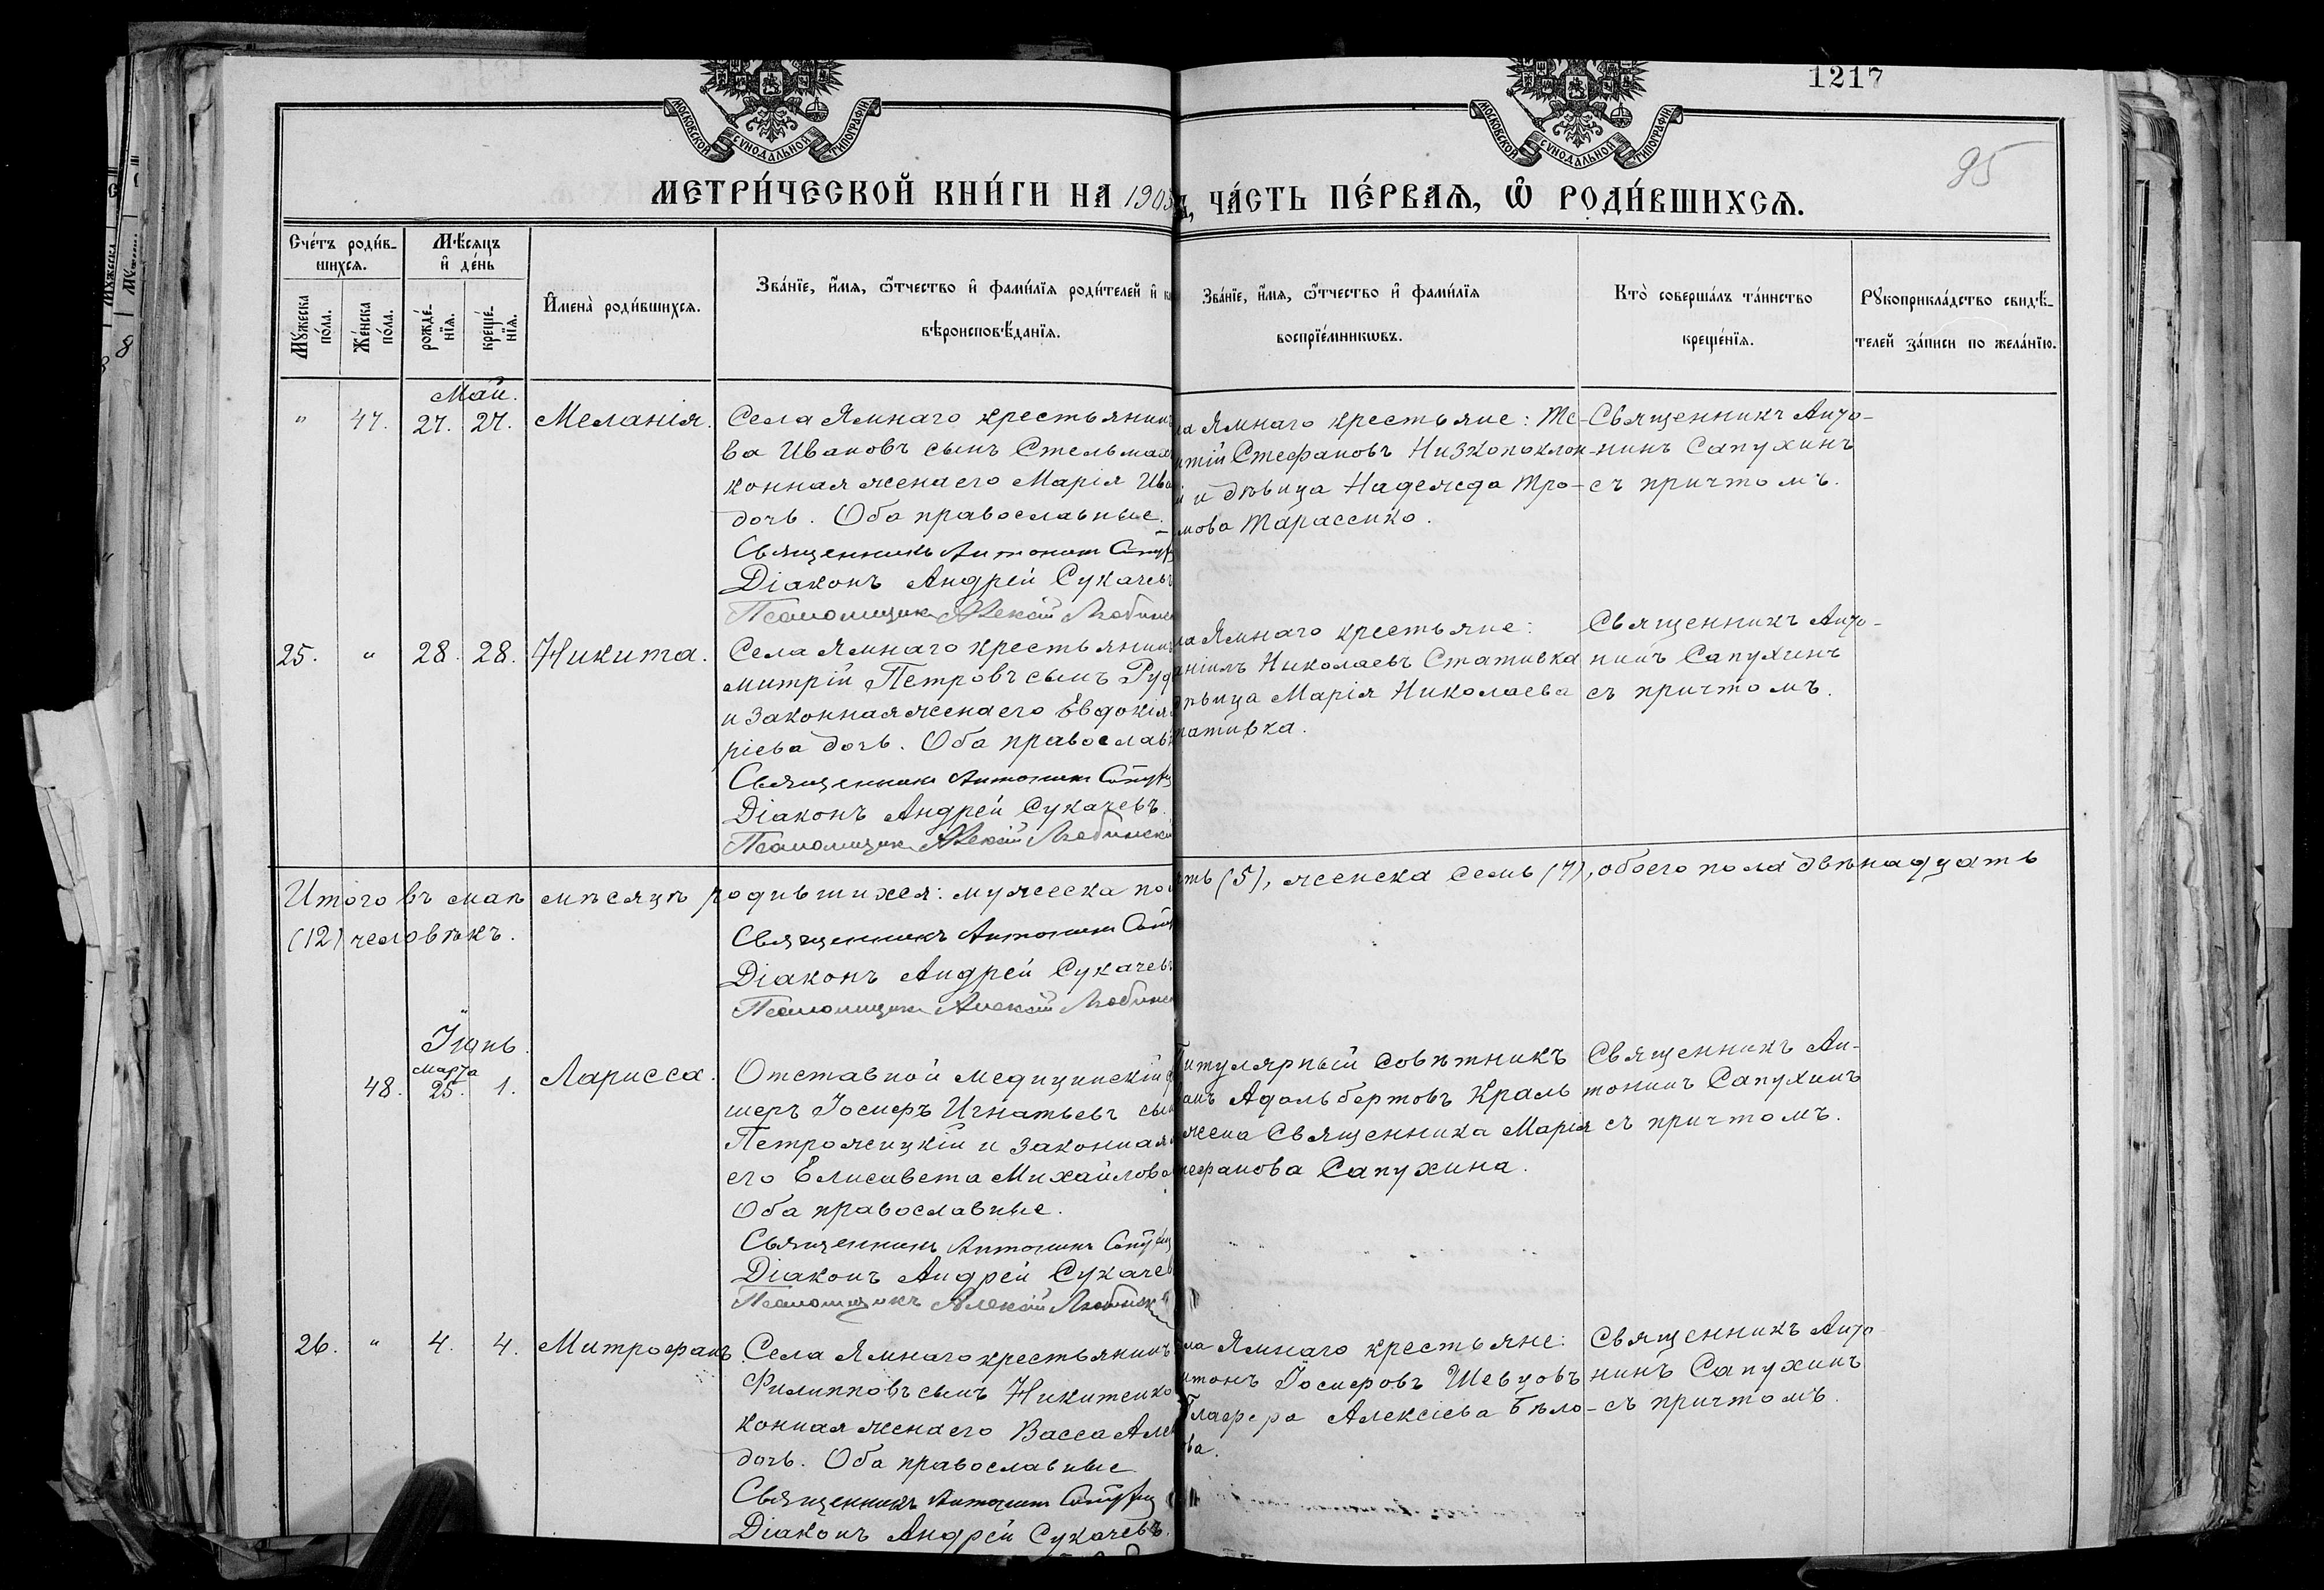 1217
95
МОСКОВСКОЙ СѴНОДАЛЬНОЙ ТИПОГРАФІИ.
МОСКОВСКОЙ СѴНОДАЛЬНОЙ ТИПОГРАФІИ.
МЕТРИ́ЧЕСКОЙ КНИ́ГИ НА 1903
ЧА́СТЬ ПЕ́РВАѦ, Ѽ РОДИ́ВШИХСѦ.
Сче́тъ роди́в-
шихсѧ.
Мѣ́сѧцъ
и҆ де́нь
Мꙋ́жеска
по́ла.
Же́нска
по́ла.
рожде́-
нїѧ.
креще́-
нїѧ.
И҆мена̀ роди́вшихсѧ.
Зва́нїе, и҆́мѧ, ѻ҆́тчество и҆ фами́лїѧ роди́телей и҆
вѣроисповѣ́данїѧ.
Зва́нїе, и҆́мѧ, ѻ҆́тчество и҆ фами́лїѧ
воспрїе́мникѡвъ.
Кто̀ соверша́лъ та́инство
креще́нїѧ.
Рꙋкоприкла́дство свидѣ́-
телей за́писи по жела́нїю.
Май.
" 47. 27. 27. Меланія.
Села Ямнаго крестьянинъ
ва Ивановъ сынъ Стельмах
конная жена его Марія Ива
дочь. Оба православные.
Священникъ Антонинъ Сапух
Діаконъ Андрей Сукачевъ
Псаломщикъ Алексій Любинск
ла Ямнаго крестьяне: Те-
нтій Стефановъ Низкопоклон-
й и дѣвица Надежда Тро-
мова Тарасенко.
Священникъ Анто-
нинъ Сапухинъ
съ причтомъ.
25. " 28. 28. Никита.
Села Ямнаго крестьянинъ
митрій Петровъ сынъ Руд
и законная жена его Евдокія
ріева дочь. Оба православн
Священникъ Антонинъ Сапух
Діаконъ Андрей Сукачевъ.
Псаломщикъ Алексій Любинскій
ла Ямнаго крестьяне:
аніилъ Николаевъ Стативка
дѣвица Марія Николаева
тативка.
Священникъ Анто-
нинъ Сапухинъ
съ причтомъ.
Итого въ маѣ мѣсяцѣ родившихся: мужеска пол
ять (5), женска семь (7), обоего пола двѣнадцать
(12) человѣкъ.
Священникъ Антонинъ Сапух
Діаконъ Андрей Сукачевъ
Псаломщикъ Алексій Любинск
Іюнь.
марта
48. 25. 1. Ларисса.
Отставной медицинскій ф
шеръ Іосифъ Игнатьевъ сын
Петрожицкій и законная
его Елисавета Михайлова
Оба православные.
Священникъ Антонинъ Сапухин
Діаконъ Андрей Сукачев
Псаломщикъ Алексій Любинскій
Титулярный совѣтникъ
анъ Адольбертовъ Краль
жена Священника Марія
тефанова Сапухина.
Священникъ Ан-
тонинъ Сапухинъ
съ причтомъ.
26. " 4. 4. Митрофанъ.
Села Ямнаго крестьянинъ
Филипповъ сынъ Никитенко
конная жена его Васса Алек
дочь. Оба православные
Священникъ Антонинъ Сапухин
Діаконъ Андрей Сукачевъ.
ла Ямнаго крестьяне:
нтонъ Іосифовъ Шевцовъ
Глафера Алексіева Бѣло-
ова.
Священникъ Анто-
нинъ Сапухинъ
съ причтомъ.